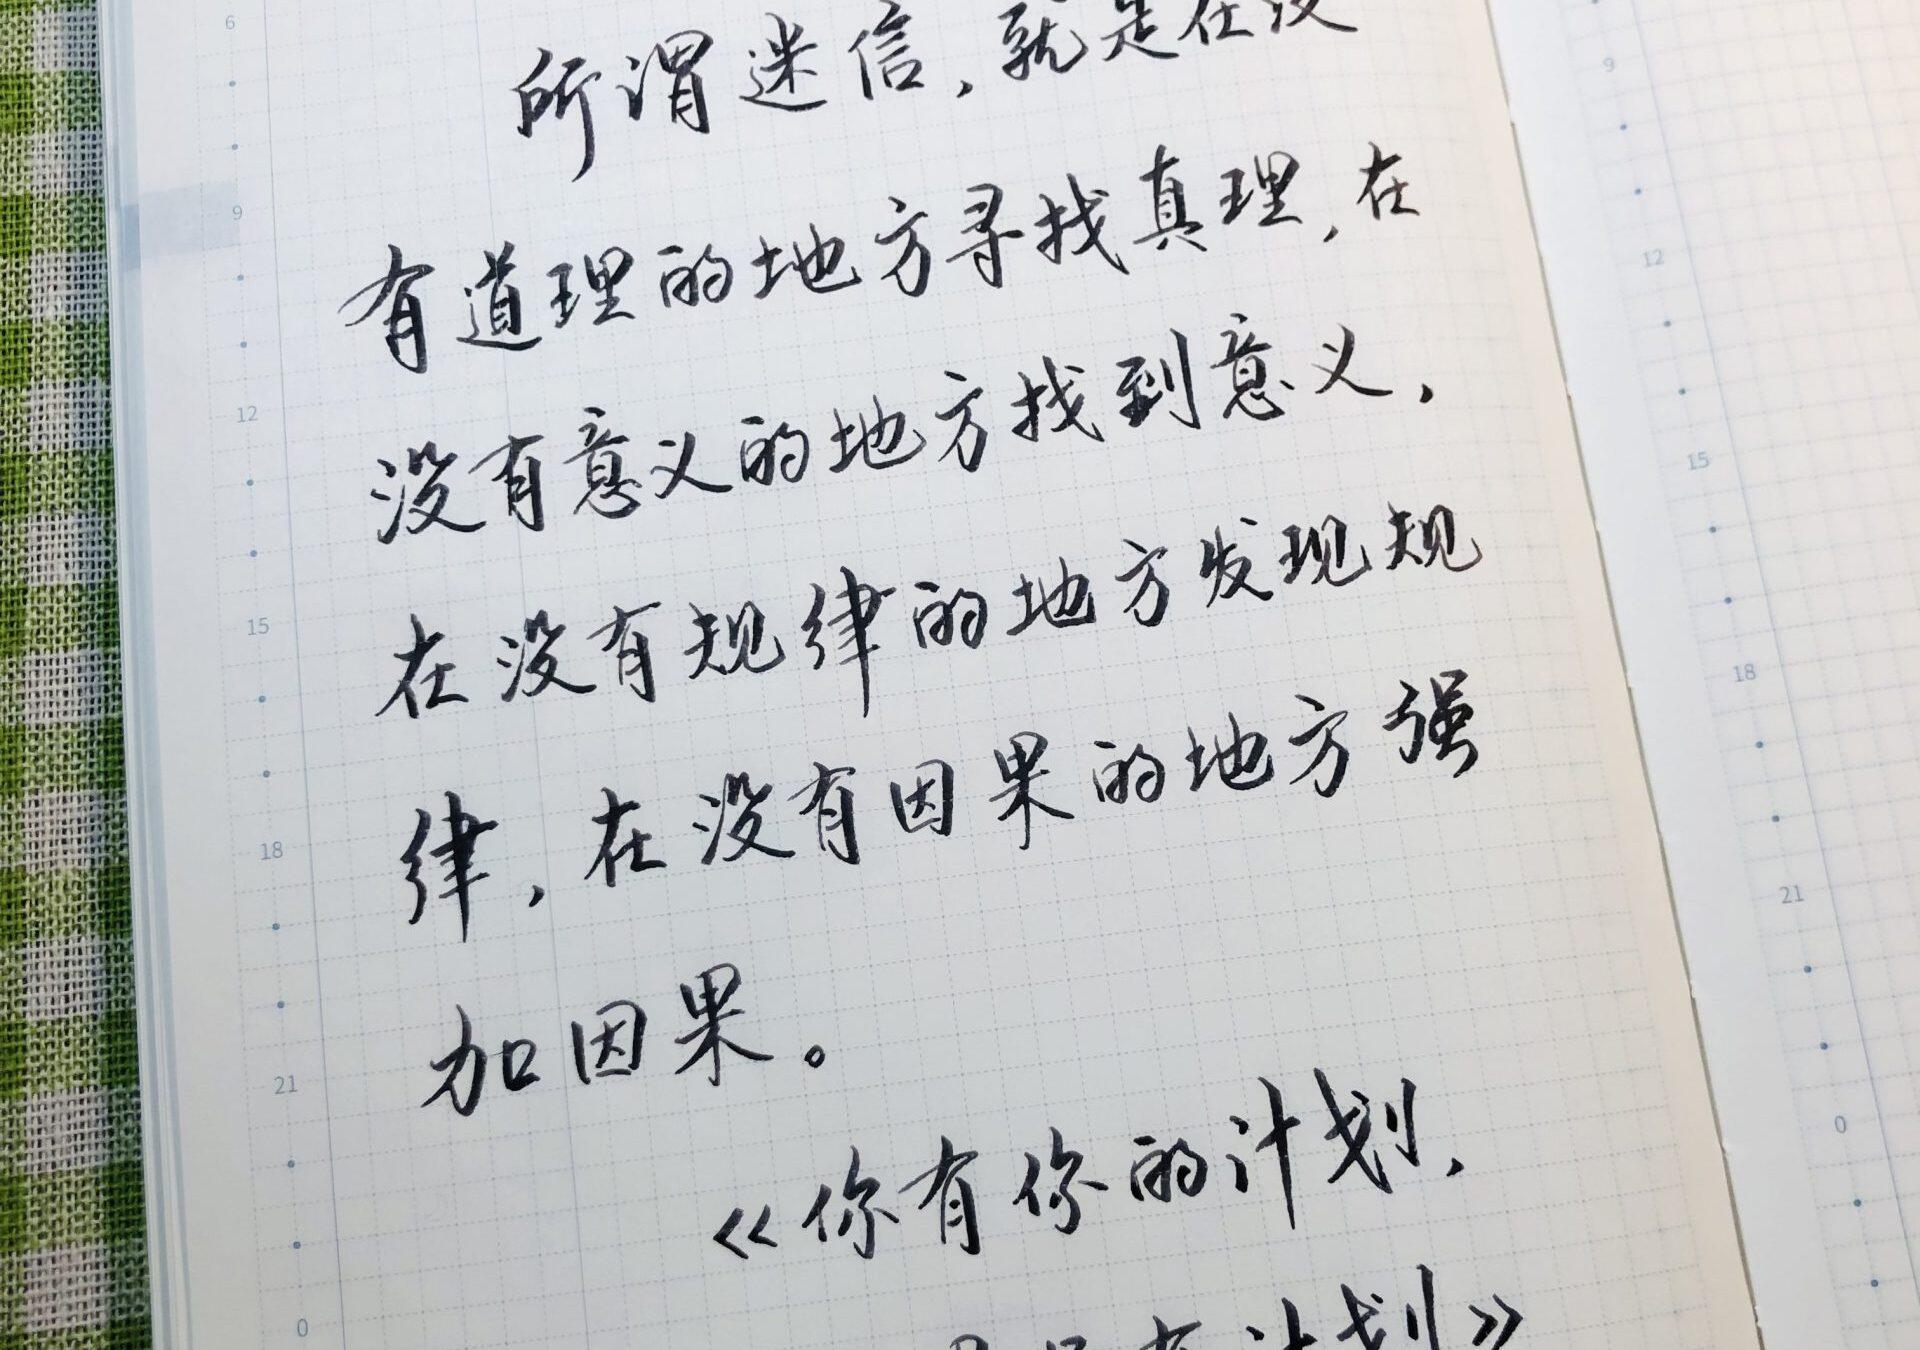 所谓迷信，就是在没
有道理的地方寻找真理，在
没有意义的地方找到意义，
在没有规律的地方发现规
律，在没有因果的地方强
加因果。
《你有你的计划，
有计划》
6
9
12
15
18
21
0
9
12
15
18
21
0